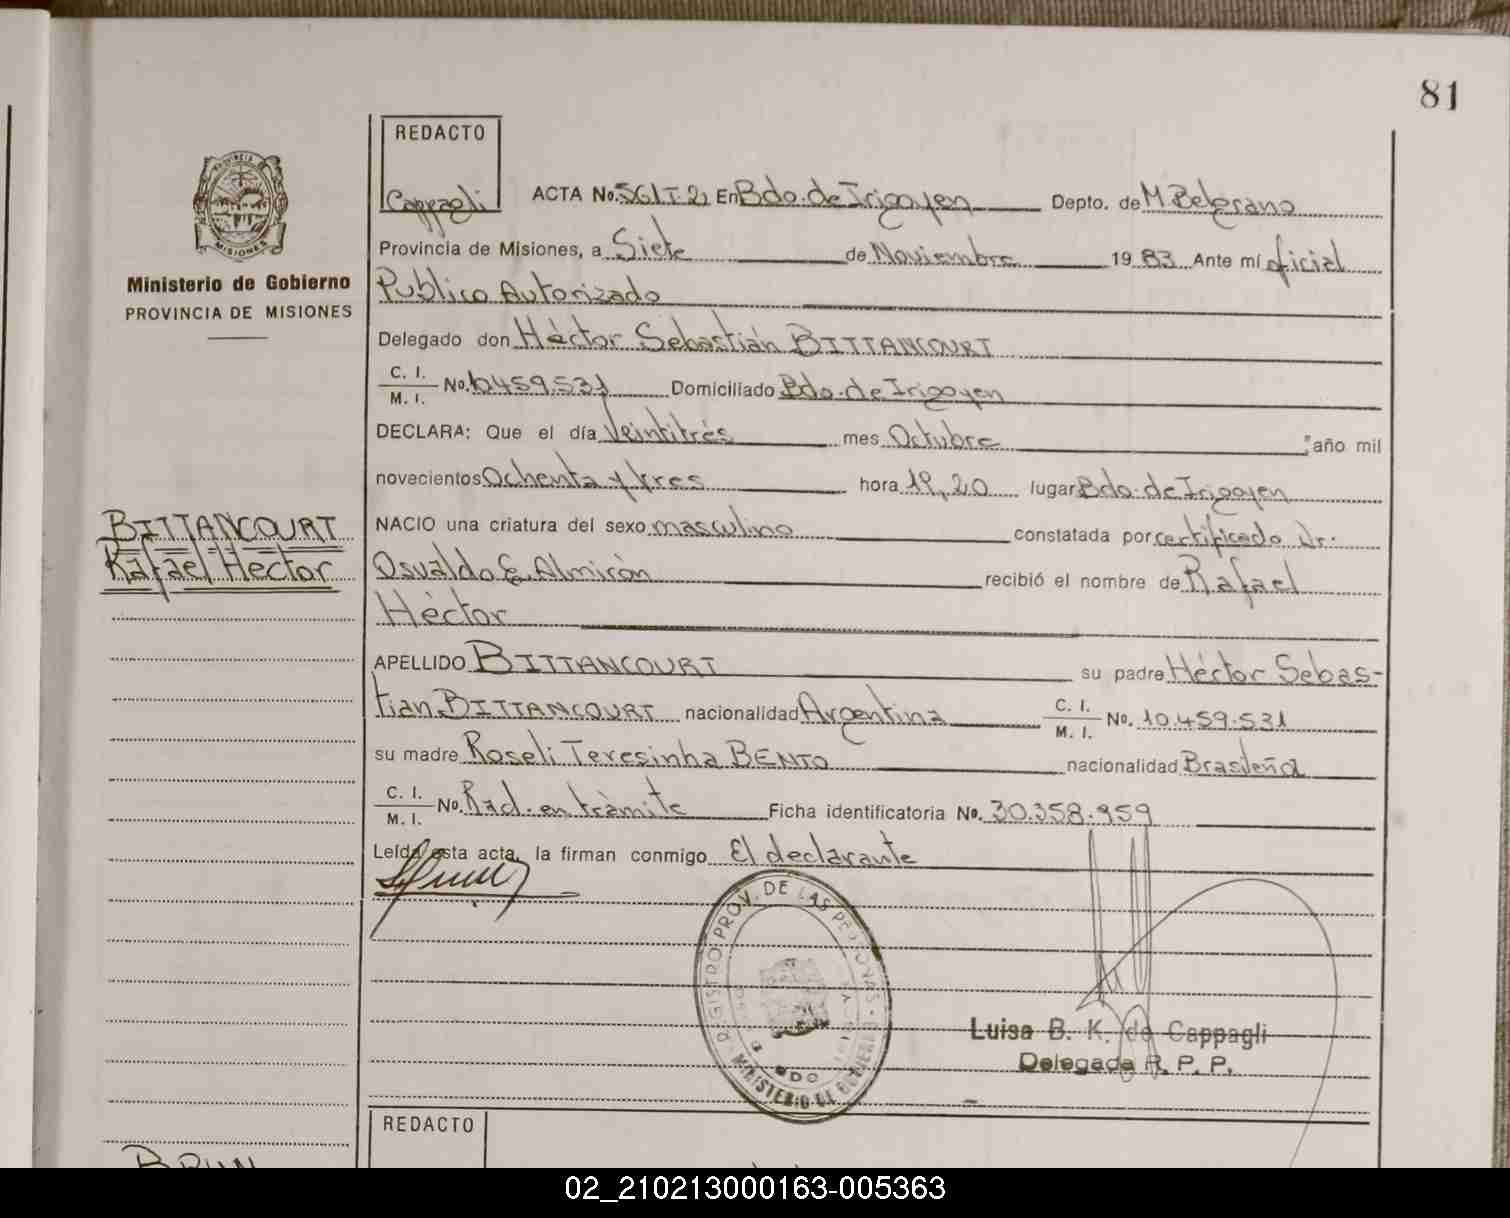 81
REDACTO
Cappagli
ACTA No. 561T.2) En Bdo. de Irigoyen Depto. de M. Belgrano
Provincia de Misiones, a Siete de Noviembre 19 83 Ante mí oficial
Publico Autorizado
Delegado don Héctor Sebastián BITTANCOURT
C. I.
M. I. No. 10459.531 Domiciliado Bdo. de Irigoyen
DECLARA: Que el día Veintitrés mes Octubre año mil
novecientos Ochenta y tres hora 19,20 lugar Bdo. de Irigoyen
NACIO una criatura del sexo masculino constatada por certificado Dr:
Osvaldo E. Almirón recibió el nombre de Rafael
Héctor
APELLIDO BITTANCOURT su padre Héctor Sebas-
tian BITTANCOURT nacionalidad Argentina C. I.
M. I. No. 10.459.531
su madre Roseli Teresinha BENTO nacionalidad Brasileña
C. I.
M. I. No. Rad. en tràmite Ficha identificatoria No. 30.358.959
Leída esta acta, la firman conmigo El declarante
PROVINCIA DE
MISIONES
Ministerio de Gobierno
PROVINCIA DE MISIONES
BITTANCOURT
Rafael Hector
REGISTRO PROV. DE LAS PERSONAS
MINISTERIO DE GOBIERNO
BDO
Luisa B. K. de Cappagli
Delegada R. P. P.
REDACTO
BRUN
02_210213000163-005363